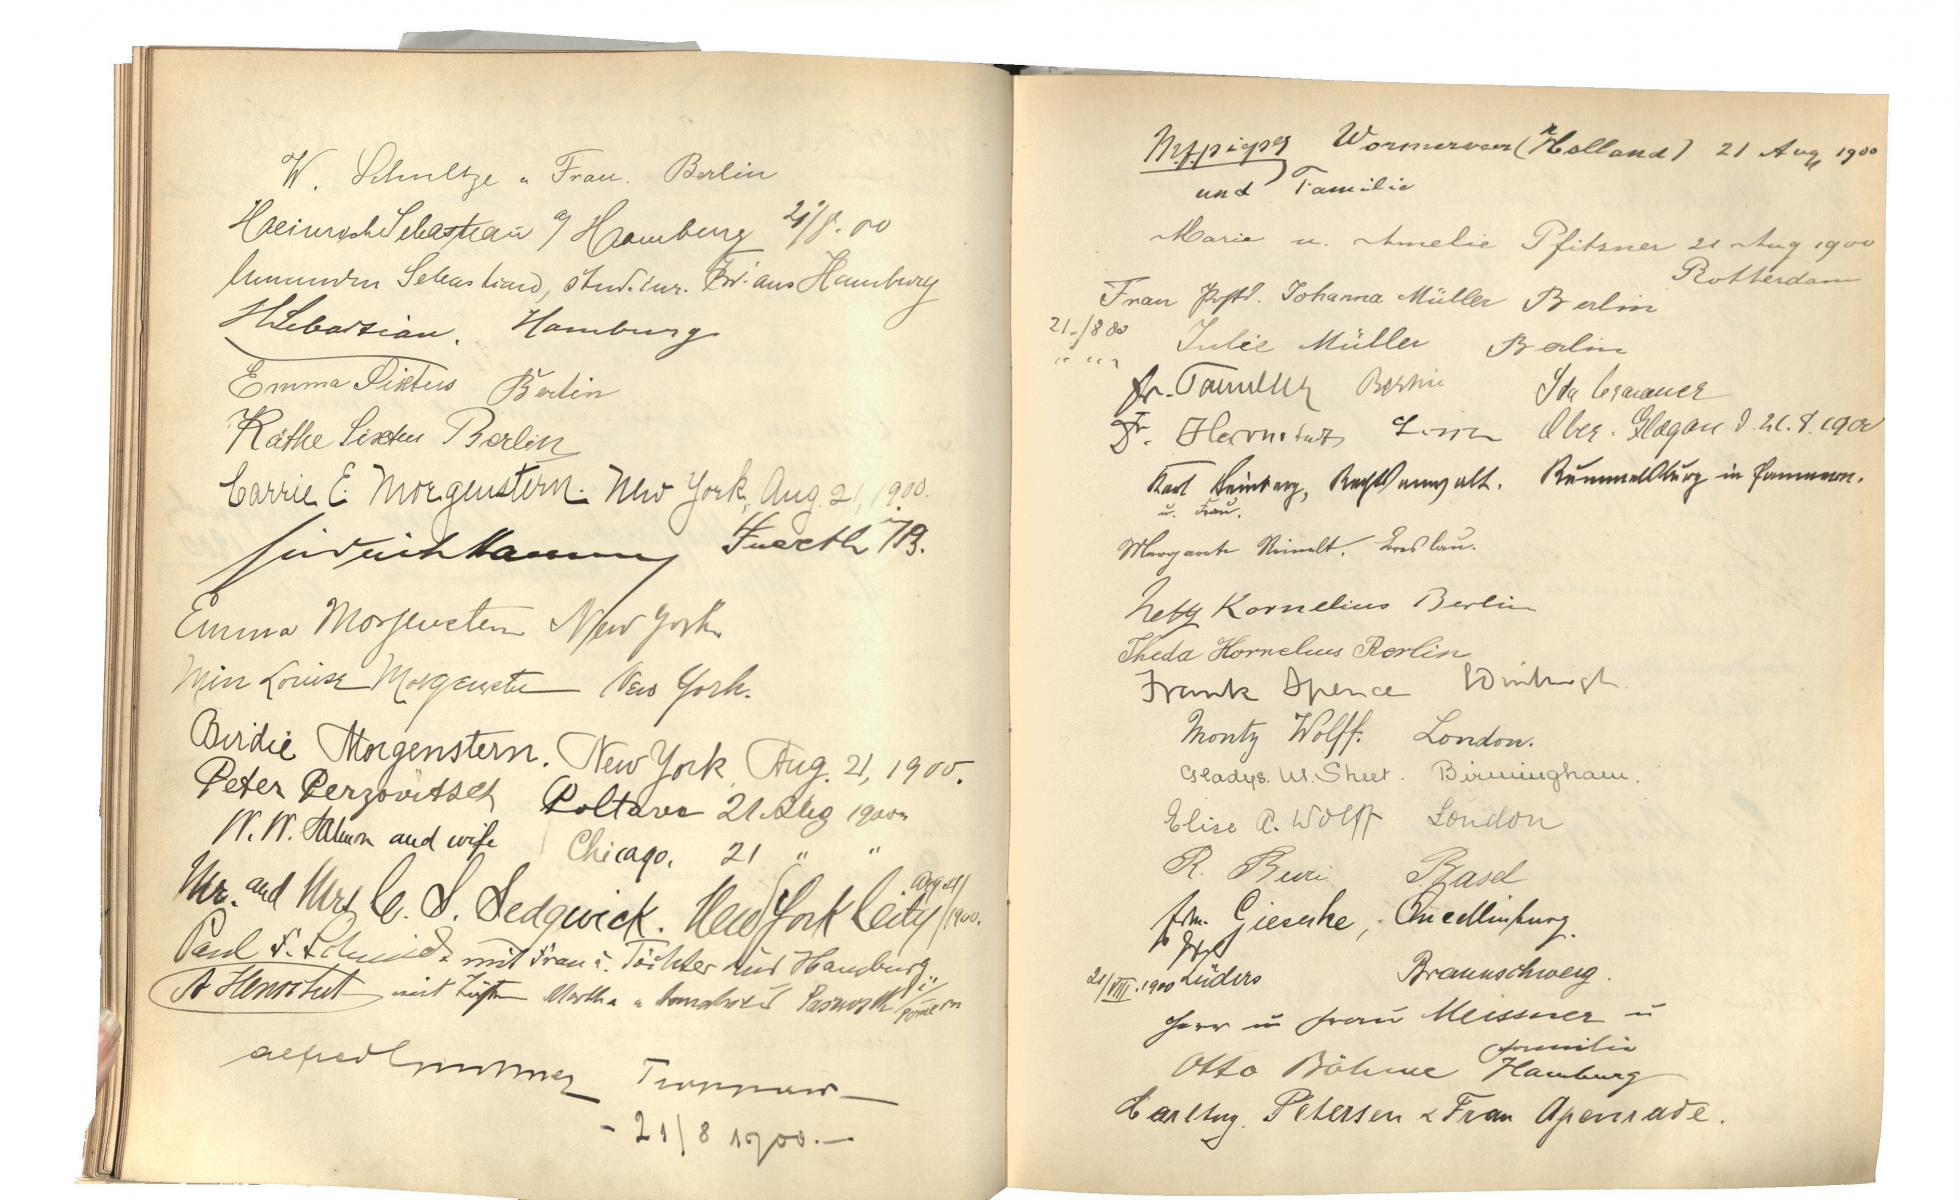 W. Schultze u Frau. Berlin
Heinrich Sebastian a/ Hamburg 21/8. 00
Sebastian, stud. iur. aus Hamburg
H Sebastian. Hamburg
Emma Sixtus Berlin
Käthe Sixtus Berlin
Carrie E. Morgenstern. New York, Aug. 21, 1900.
Fuerth i/B.
Emma Morgenstern New York.
Louise Morgenstern New York.
Birdie Morgenstern. New York, Aug. 21, 1900.
Peter Perzovitsch Poltava 21 Aug 1900
W. W. and wife Chicago. 21 " "
Mr. and Mrs C. S. Sedgwick. New York City Aug 21/1900.
Paul F. Schmidt mit Frau u. Töchter aus Hamburg
A Henschel mit Martha u Pasewalk i/Pomern
Alfred Troppau
- 21/8 1900. -
Wormerveer (Holland) 21 Aug 1900
und Familie
Marie u. Amelie Pfitzner 21 Aug 1900
Rotterdam
Frau Johanna Müller Berlin
21./8 00
Julie Müller Berlin
" " "
Fr. Berlin Ida
Fr. Ober. Glogau d. 21. 8. 1900
Karl Rechtsanwalt. Rummelsburg in Pommern.
u. Frau.
Margarete Breslau.
Hetty Kornelius Berlin
Theda Kornelius Berlin
Frank Spence
Monty Wolff. London.
Gladys. M. Street. Birmingham.
Elise A. Wolff London
R. Buri Basel
Giesecke, Quedlinburg.
21/VIII. 1900 Lüders Braunschweig.
Herr u Frau Meissner u
Familie
Otto Böhme Hamburg
Carl Aug. Petersen & Frau Apenrade.